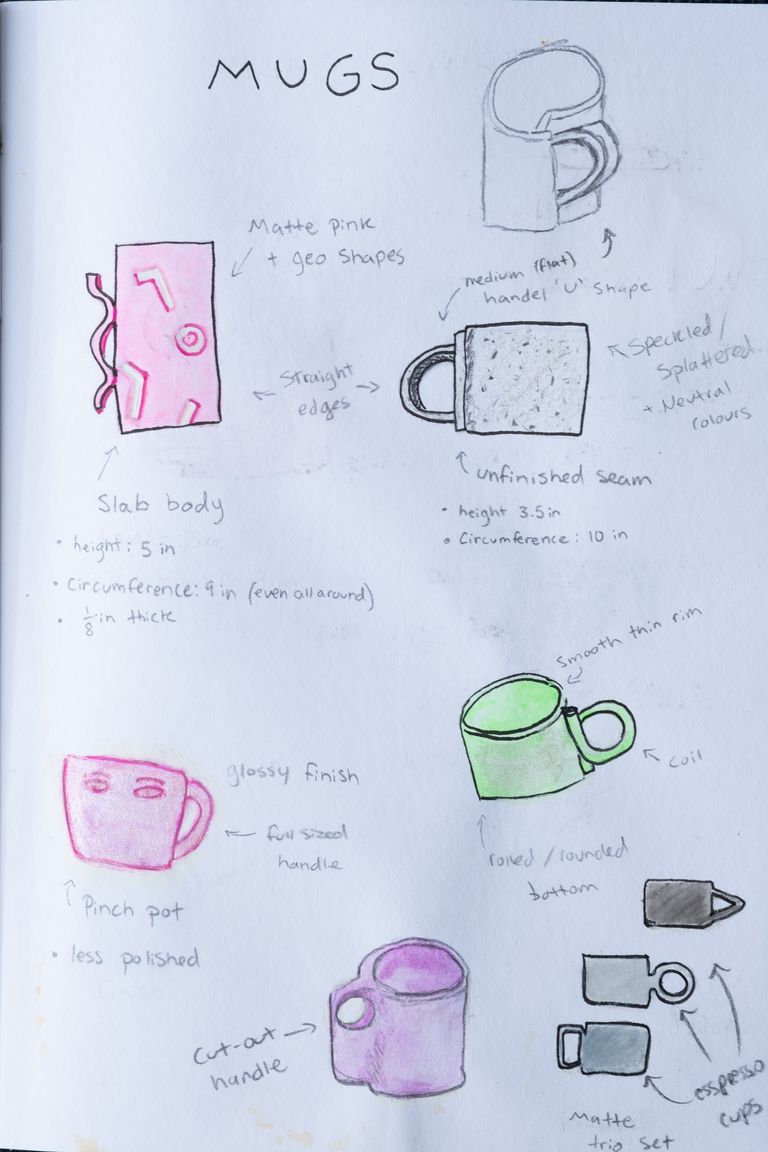 MUGS
Matte pink
+ geo shapes
medium (flat)
handel 'U' shape
Straight
edges
Speckled /
Splattered
+ Neutral
colours
unfinished seam
• height 3.5 in
• Circumference: 10 in
Slab body
• height: 5 in
• Circumference: 9 in (even all around)
• 1/8 in thick
smooth thin rim
coil
rolled / rounded
bottom
glossy finish
full sized
handle
Pinch pot
• less polished
finish
Cut-out
handle
esspresso
cups
Matte
trio set